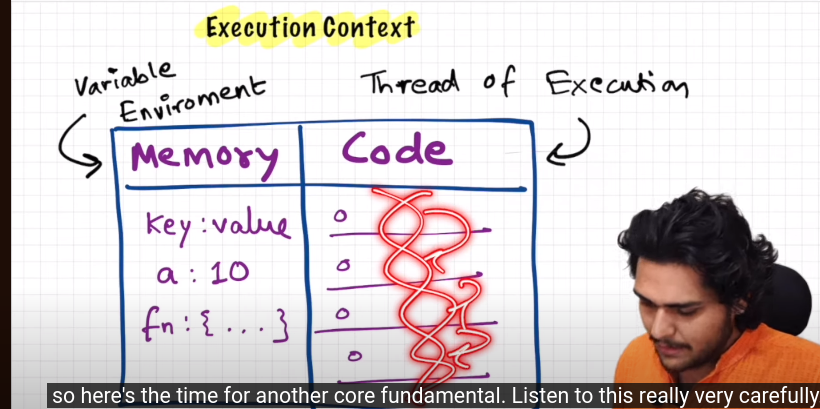 Execution Context
Variable
Enviroment
Thread of Execution
Memory
Code
Key : value
a : 10
fn : { . . . }
so here's the time for another core fundamental. Listen to this really very carefully